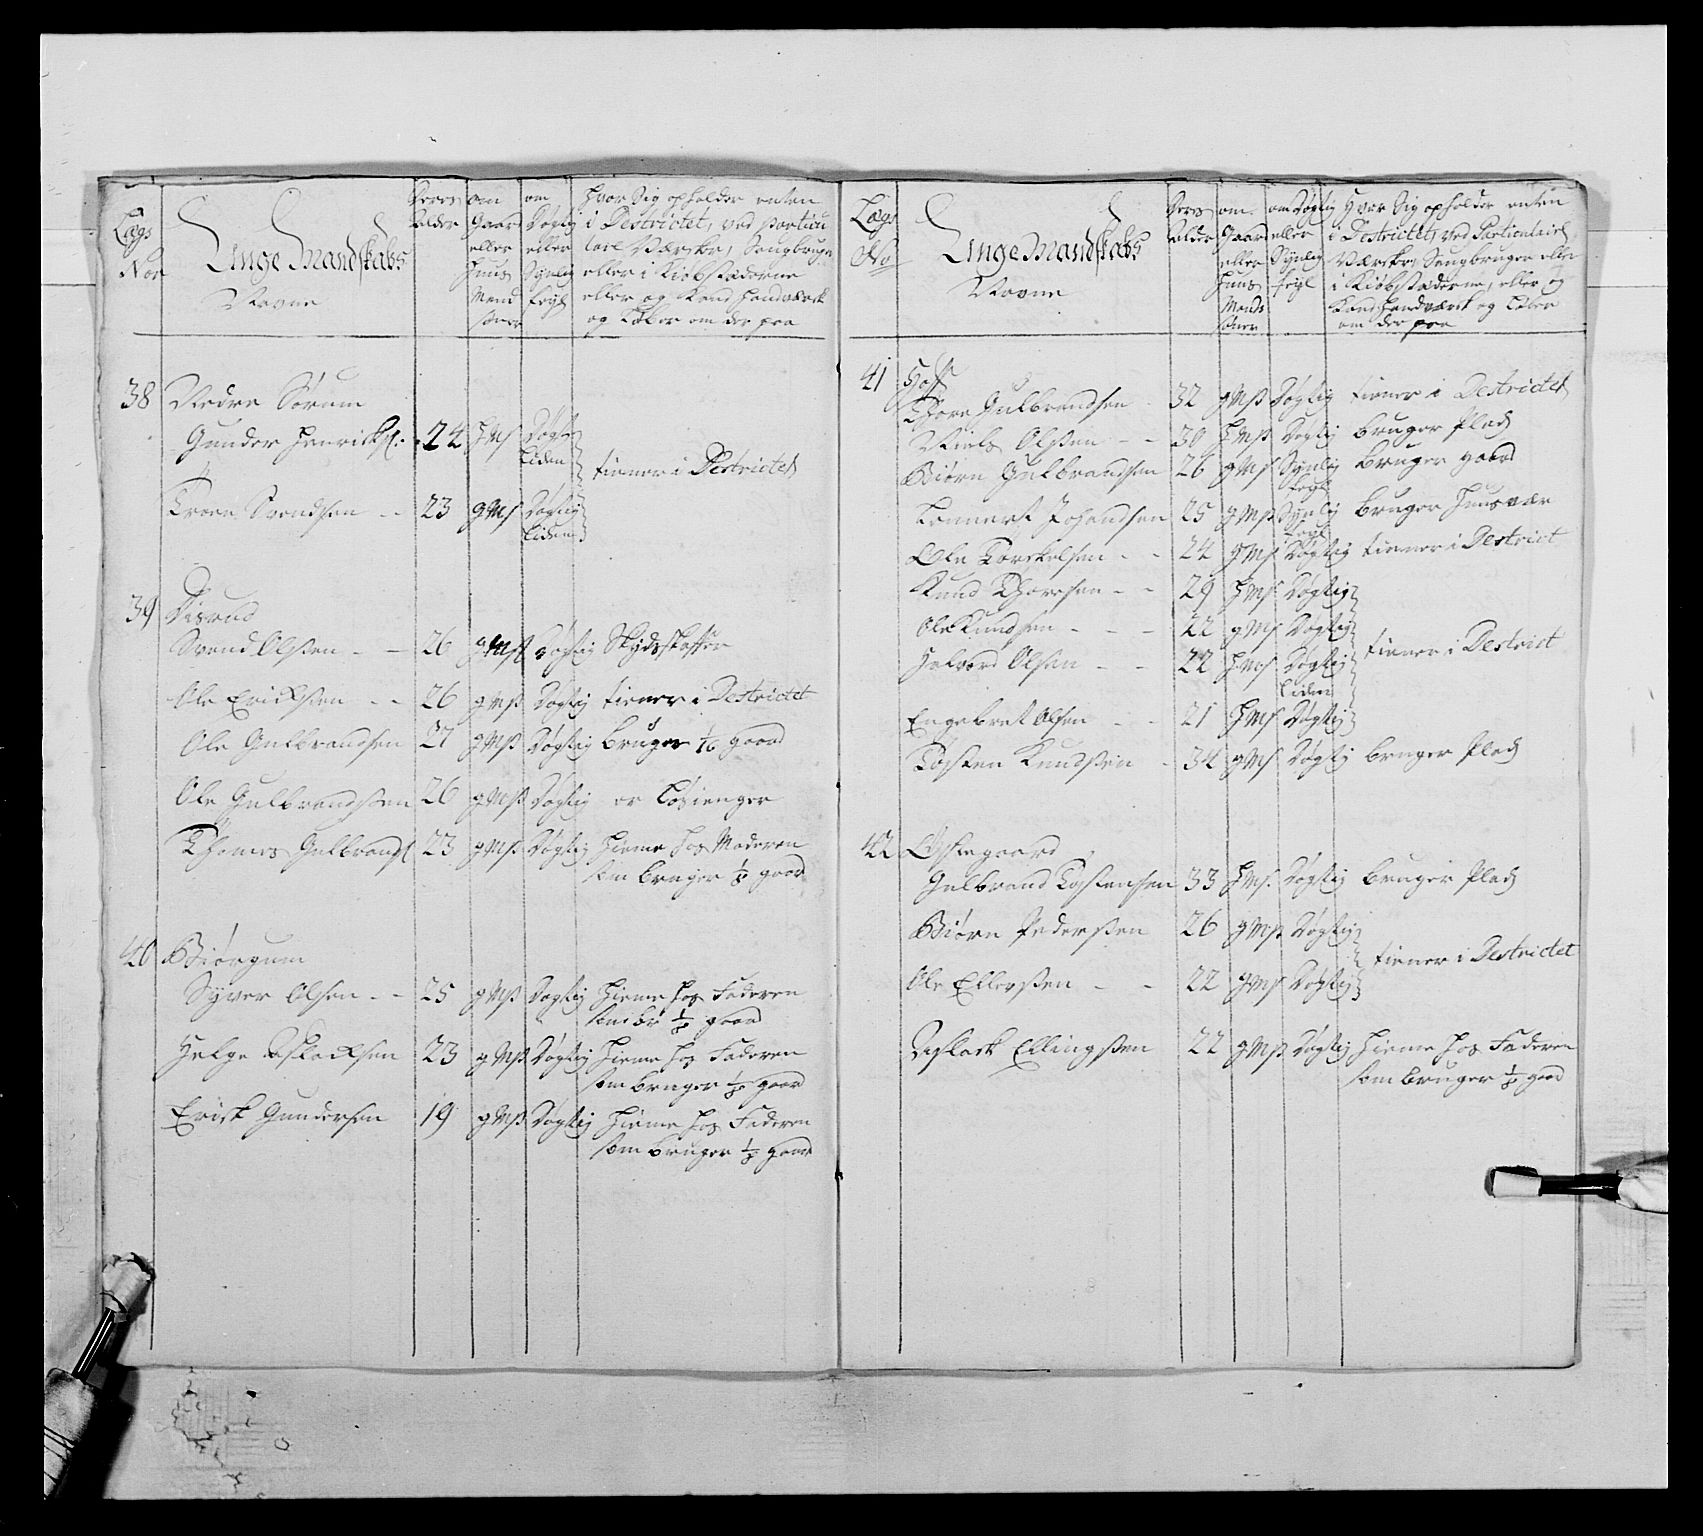 Lægs
Nor
Unge Mandskabs
Navne
Deres
Alder
om
Gaard
eller
Huus
Mand
Søner
om
Døgtig
eller
Synlig
feyl
Hvor Sig opholder enten
i Destrictet, ved particu
lare Værcker, Saugbruger
eller i Kiøbstæderne
eller og Kand Handværck
og Løber om der paa
38 Nedre Sørum
Gunder Henrichs. 24 HMS Døgt
liden
tiener i Destrictet
Svendsen - - 23 gMS Døgtig
liden
39 Disrud
Svend Olsen - - 26 gMS Døgtig Skydsskaffer
Ole Ericksen - - 26 gMS Døgtig tiener i Destrictet
Ole Gulbrandsen 27 gMS Døgtig bruger 1/6 gaard
Ole Gulbrandsen 26 gMS Døgtig er Løsienger
Thomes Gulbrands 23 gMS Døgtig Hieme hos Moderen
som bruger 1/3 gaard
40 Biørgum
Syver Olsen - - 25 gMS Døgtig Hieme hos Faderen
som br 1/3 gaard
Helge Aslacksen 23 gMS Døgtig Hieme hos Faderen
som bruger 1/3 gaar
Erick Gundersen 19 gMS Døgtig Hieme hos Faderen
som bruger 1/3 gaar
Lægs
No
Unge Mandskabs
Navne
Deres
Alder
om
Gaard
eller
Huus
Mands
Søner
om Døgtig
eller
Synlig
feyl
Hvor Sig opholder enten
i Destrictet, ved Particulaire
Værcker Saugbruger eller
i Kiøbstæderne, eller og
Kand Handværck og Løber
om der paa
41 Hoff
Thore Gulbrandsen - 32 gMS Døgtig tiener i Destrictet
Niels Olsen - - 30 HMS Døgtig bruger Plads
Biørn Gulbrandsen 26 gMS Synlig bruger gaard
feyl
Lennert Johandsen 25 gMS Synlig bruger Huusvær
feyl
Ole Torckelsen - - 24 gMS Døgtig tiener i Destrict
Knud Thoresen - - 29 HMS Døgtig
Ole Knudsen - - - 22 gMS Døgtig
tiener i Destrict
Halvord Olsen - - 22 HMS Døgtig
liden
Engebret Olsen - - 21 HMS Døgtig
Tosten Knudsen - 34 gMS Døgtig bruger Plads
42
Gulbrand Tostensen 33 HMS. Døgtig bruger Plads
Biørn Pedersen 26 gMS Døgtig
tiener i Destrictet
Ole Ellersen - - 22 gMS Døgtig
Aslack Ellingsen 22 gMS Døgtig Hieme hos Faderen
som bruger 1/3 gaad